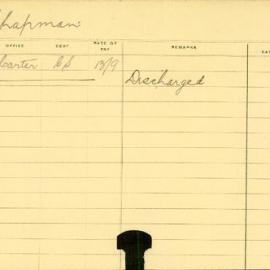 Chapman
OFFICE DEPT RATE OF PAY REMARKS DAT
Carter CS 13/9
Discharged